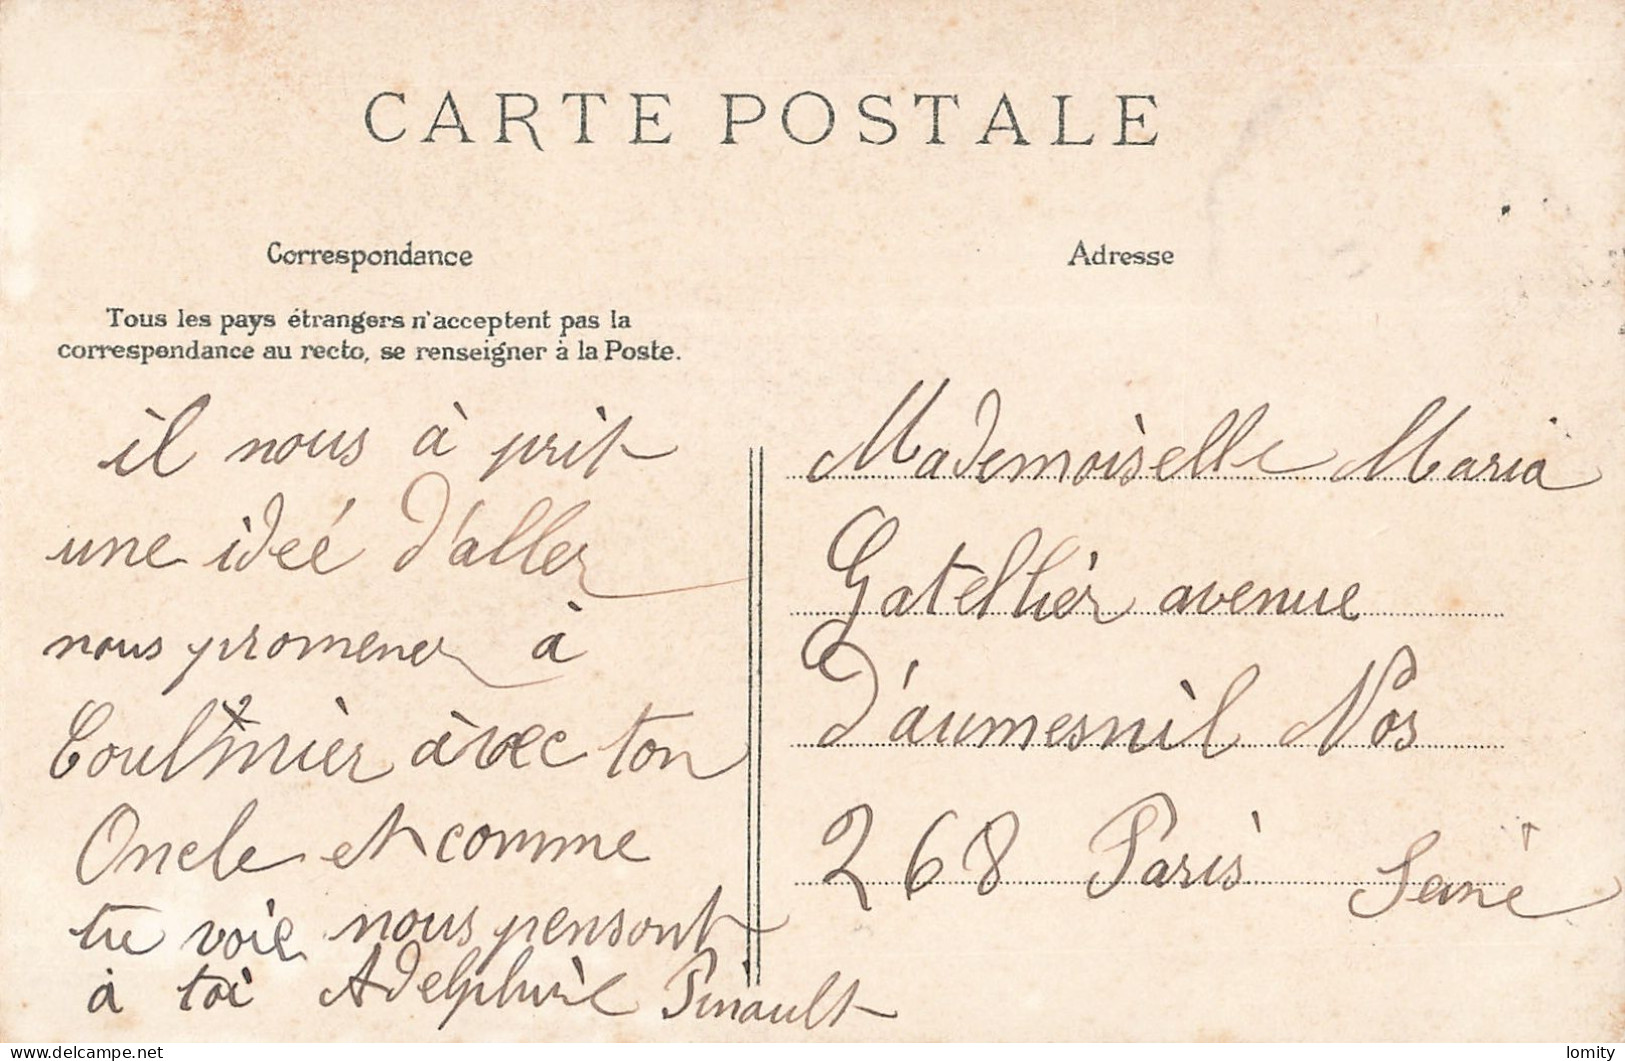 CARTE POSTALE
Correspondance
Tous les pays étrangers n'acceptent pas la
correspondance au recto, se renseigner à la Poste.
il nous à prit
une ideé d'aller
nous promener à
Coulmier àvec ton
Oncle et comme
tu voie nous pensont
à toi Adelphine Pinault
Adresse
Mademoiselle Maria
Gatellier avenue
D'aumesnil Nos
268 Paris Seine
delcampe.net
lomity